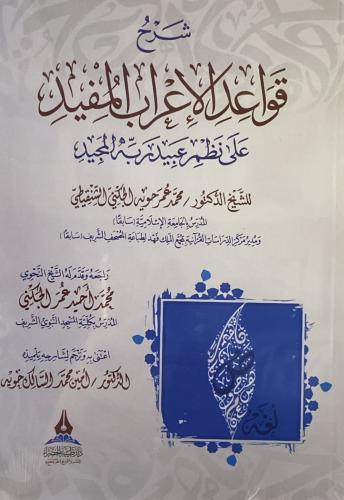 شرح
قواعد الإعراب المفيد
على نظم عبيد ربه المجيد
للشيخ الدكتور / محمد عمر حويه الجكني الشنقيطي
المدرس بالجامعة الإسلامية (سابقا)
ومدير مركز الدراسات القرآنية بمجمع الملك فهد لطباعة المصحف الشريف (سابقا)
راجعه وقدم له الشيخ النحوي
محمد أحيد عمر الجكني
المدرس بكلية المسجد النبوي الشريف
اعتنى به وترجم لشارحه تلميذه
الدكتور / أمين محمد السالك حويه
لغة